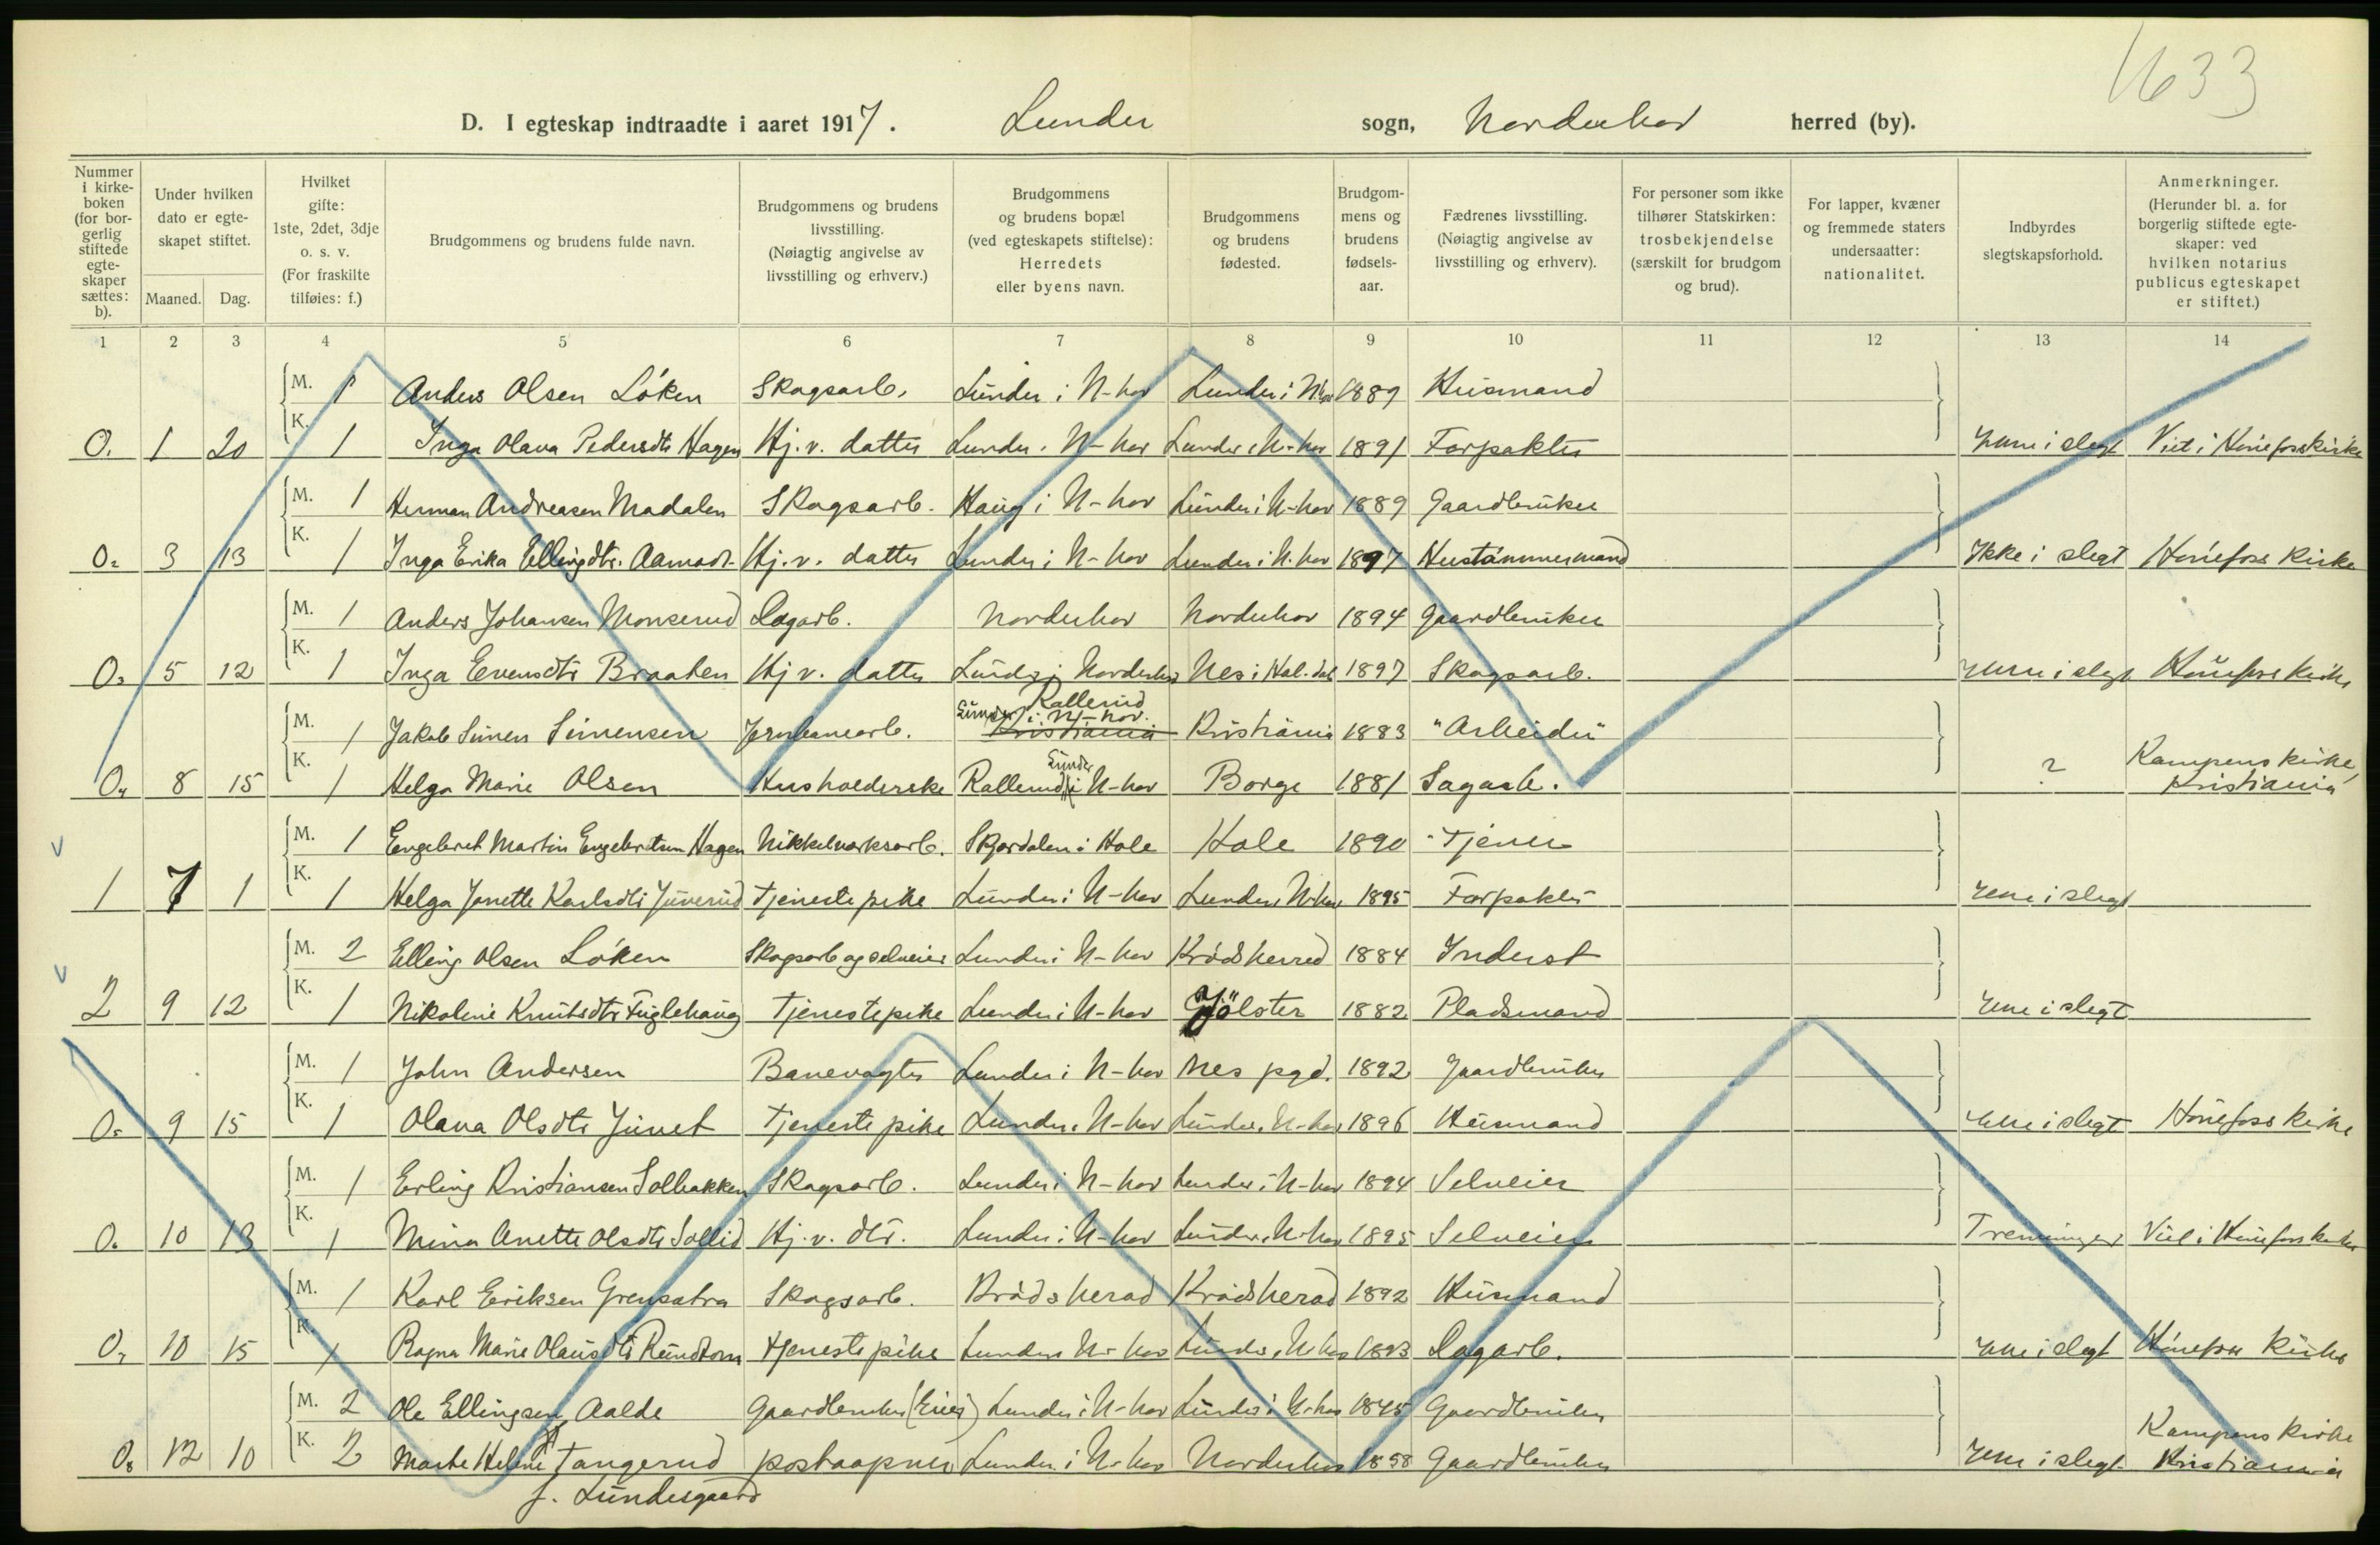 1633
D. I egteskap indtraadte i aaret 1917. Lunder sogn, Norderhov herred (by).
Nummer i kirkeboken (for borgerlig stiftede egteskaper sættes: b).
Under hvilken dato er egteskapet stiftet.
Maaned. Dag.
Hvilket gifte: 1ste, 2det, 3dje o. s. v. (For fraskilte tilføies: f.)
Brudgommens og brudens fulde navn.
Brudgommens og brudens livsstilling. (Nøiagtig angivelse av livsstilling og erhverv.)
Brudgommens og brudens bopæl (ved egteskapets stiftelse): Herredets eller byens navn.
Brudgommens og brudens fødested.
Brudgommens og brudens fødselsaar.
Fædrenes livsstilling. (Nøiagtig angivelse av livsstilling og erhverv).
For personer som ikke tilhører Statskirken: trosbekjendelse (særskilt for brudgom og brud).
For lapper, kvæner og fremmede staters undersaatter: nationalitet.
Indbyrdes slegtskapsforhold.
Anmerkninger. (Herunder bl. a. for borgerlig stiftede egteskaper: ved hvilken notarius publicus egteskapet er stiftet.)
1 2 3 4 5 6 7 8 9 10 11 12 13 14
M. 1 Anders Olsen Löken Skogsarb. Lunder i N-hov Lunder i N-hov 1889 Husmand
0. 1 20 K. 1 Inga Olava Pedersdtr Hagen Hj. v. datter Lunder i N-hov Lunder i N-hov 1891 Forpakter Ikke i slegt Viet i Hönefoss kirke
M. 1 Herman Andreasen Modalen Skogsarb. Haug i N-hov Lunder i N-hov 1889 Gaardbruker
0₂ 3 13 K. 1 Inga Erika Ellingdtr. Aamodt Hj. v. datter Lunder i N-hov Lunder i N-hov 1897 Hustömmermand Ikke i slegt Hönefoss kirke
M. 1 Anders Johansen Monserud Sagarb. Norderhov Norderhov 1894 Gaardbruker
0₃ 5 12 K. 1 Inga Evensdtr Braaten Hj v. datter Lunder i Norderhov Nes i Hal.dal 1897 Skogsarb. Ikke i slegt Hönefoss kirke
Rallerud
M. 1 Jakob Simen Simensen Jernbanearb. Lunder i N-hov. Kristiania Kristiania 1883 "Arbeider"
0₄ 8 15 K. 1 Helga Marie Olsen Husholderske Rallerud Lunder i N-hov Borge 1881 Sagarb. ? Kampens kirke, Kristiania
M. 1 Engebret Martin Engebretsen Hagen Nikkelverksarb. Skjordalen i Hole Hole 1890 Tjener
V 1 7 1 K. 1 Helga Janette Karlsdtr Juverud Tjenestepike Lunder i N-hov Lunder i N-hov 1895 Forpakter Ikke i slegt
M. 2 Elling Olsen Löken Skogsarb og selveier Lunder i N-hov Krödsherred 1884 Inderst
V 2 9 12 K. 1 Nikoline Knutsdtr Fuglehaug Tjenestepike Lunder i N-hov Jölster 1882 Pladsmand Ikke i slegt
M. 1 John Andersen Banevogter Lunder i N-hov Nes pgd. 1892 Gaardbruker
0₅ 9 15 K. 1 Olava Olsdtr Juvet Tjenestepike Lunder i N-hov Lunder i N-hov 1896 Husmand Ikke i slegt Hönefoss kirke
M. 1 Erling Kristiansen Solbakken Skogsarb. Lunder i N-hov Lunder i N-hov 1894 Selveier
0₆ 10 13 K. 1 Mina Anette Olsdtr Sollid Hj. v. dtr. Lunder i N-hov Lunder i N-hov 1895 Selveier Tremninger Viet i Hönefoss kirke
M. 1 Karl Eriksen Grensatra Skogsarb. Krödsherad Krödsherad 1892 Husmand
0₇ 10 15 K. 1 Ragna Marie Olausdtr Rundtom Tjenestepike Lunder i N-hov Lunder i N-hov 1893 Sagarb. Ikke i slegt Hönefoss kirke
M. 2 Ole Ellingsen Aalde Gaardbruker (Eier) Lunder i N-hov Lunder i N-hov 1845 Gaardbruker
0₈ 12 10 K. 2 Marte Helene Tangerud postaapner Lunder i N-hov Norderhov 1858 Gaardbruker Ikke i slegt Kampens kirke Kristiania
f. Lundesgaard